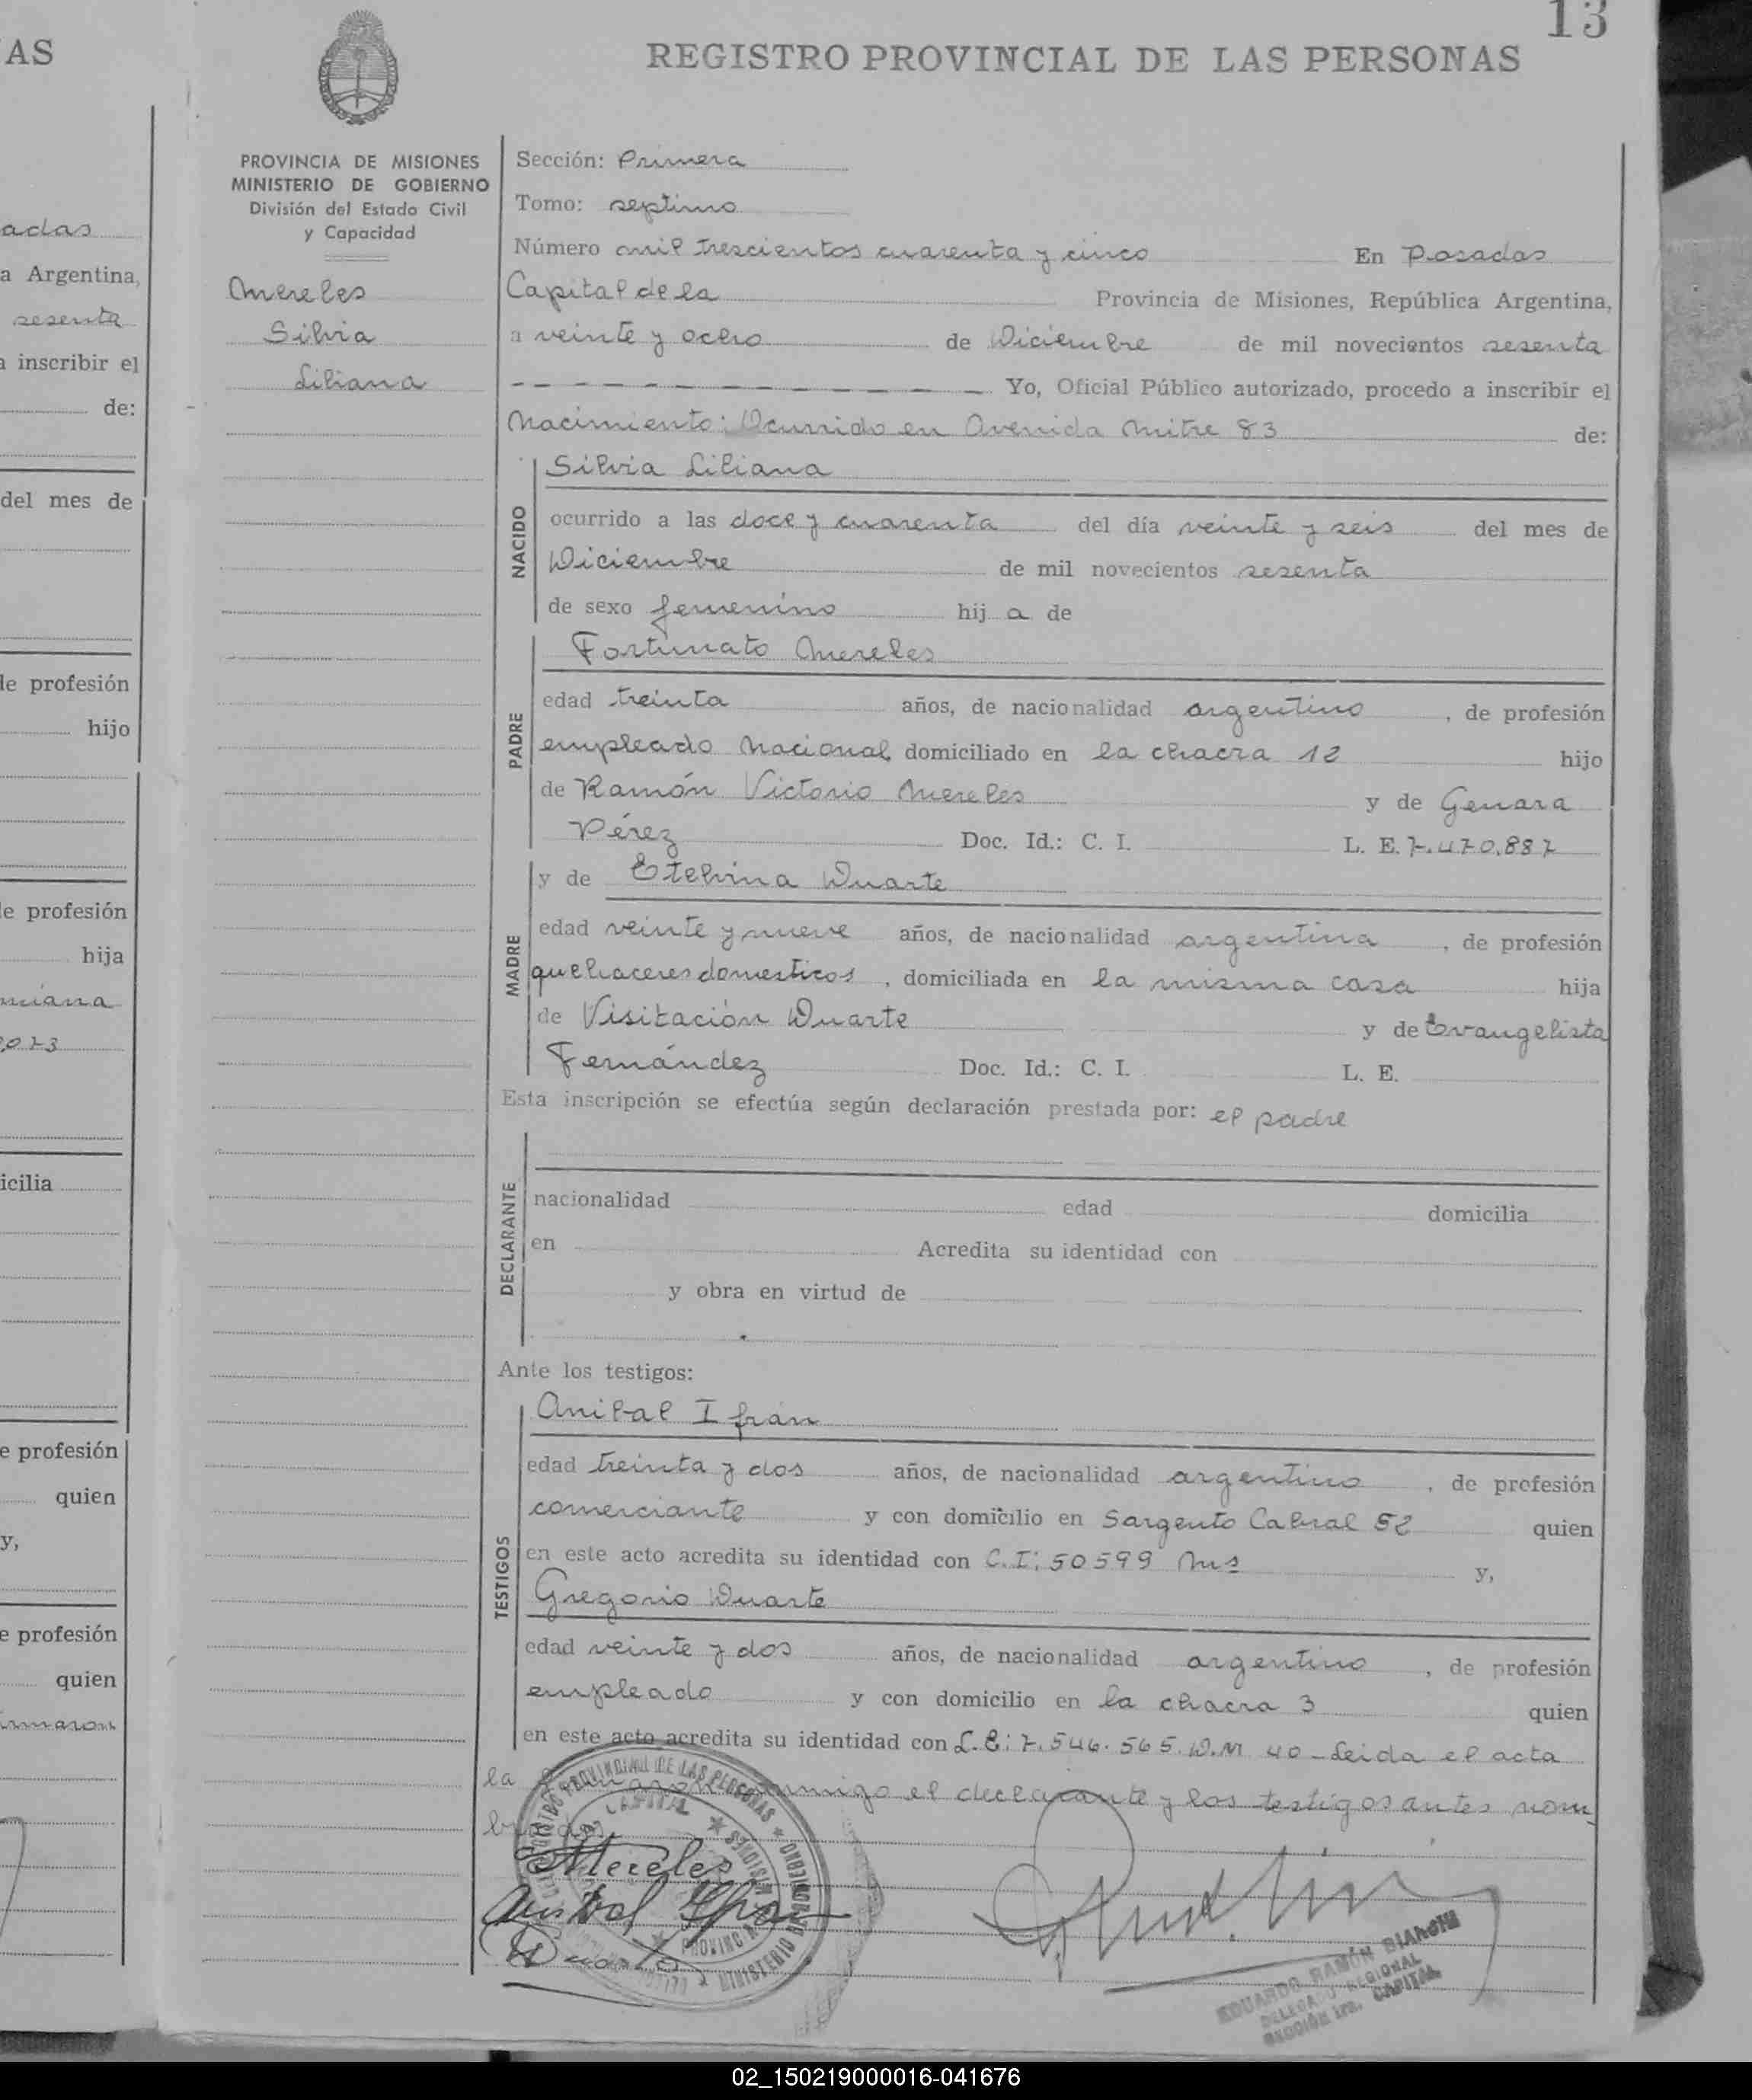 13
REGISTRO PROVINCIAL DE LAS PERSONAS
PROVINCIA DE MISIONES
MINISTERIO DE GOBIERNO
División del Estado Civil
y Capacidad
Mereles
Silvia
Liliana
Sección: Primera
Tomo: septimo
Número mil trescientos cuarenta y cinco En Posadas
Capital de la Provincia de Misiones, República Argentina,
a veinte y ocho de Diciembre de mil novecientos sesenta
Yo, Oficial Público autorizado, procedo a inscribir el
Nacimiento: Ocurrido en Avenida Mitre 83 de:
NACIDO
Silvia Liliana
ocurrido a las doce y cuarenta del día veinte y seis del mes de
Diciembre de mil novecientos sesenta
de sexo femenino hij a de
PADRE
Fortunato Mereles
edad treinta años, de nacionalidad argentino, de profesión
empleado Nacional domiciliado en la chacra 12 hijo
de Ramón Victorio Mereles y de Genara
Pérez Doc. Id.: C. I. L. E. 7.470.887
MADRE
y de Etelvina Duarte
edad veinte y nueve años, de nacionalidad argentina, de profesión
quehaceres domesticos, domiciliada en la misma casa hija
de Visitación Duarte y de Evangelista
Fernández Doc. Id.: C. I. L. E.
Esta inscripción se efectúa según declaración prestada por: el padre
DECLARANTE
nacionalidad edad domicilia
en Acredita su identidad con
y obra en virtud de
Ante los testigos:
TESTIGOS
Anibal Ifran
edad treinta y dos años, de nacionalidad argentino, de profesión
comerciante y con domicilio en Sargento Cabral 52 quien
en este acto acredita su identidad con C.I: 50599 Mns y,
Gregorio Duarte
edad veinte y dos años, de nacionalidad argentino, de profesión
empleado y con domicilio en la chacra 3 quien
en este acto acredita su identidad con L.E: 7.546.565.D.M 40 - Leida el acta
la conmigo el declarante y los testigos antes nom
brados.
Mereles
Anibal Ifran
Duarte
REGISTRO PROVINCIAL DE LAS PERSONAS
CAPITAL
MISIONES
MINISTERIO DE GOBIERNO
EDUARDO RAMÓN BIANCHI
DELEGADO REGIONAL
SECCIÓN 1ra. CAPITAL
AS
adas
a Argentina,
sesenta
a inscribir el
de:
del mes de
de profesión
hijo
de profesión
hija
icilia
e profesión
quien
y,
e profesión
quien
02_150219000016-041676